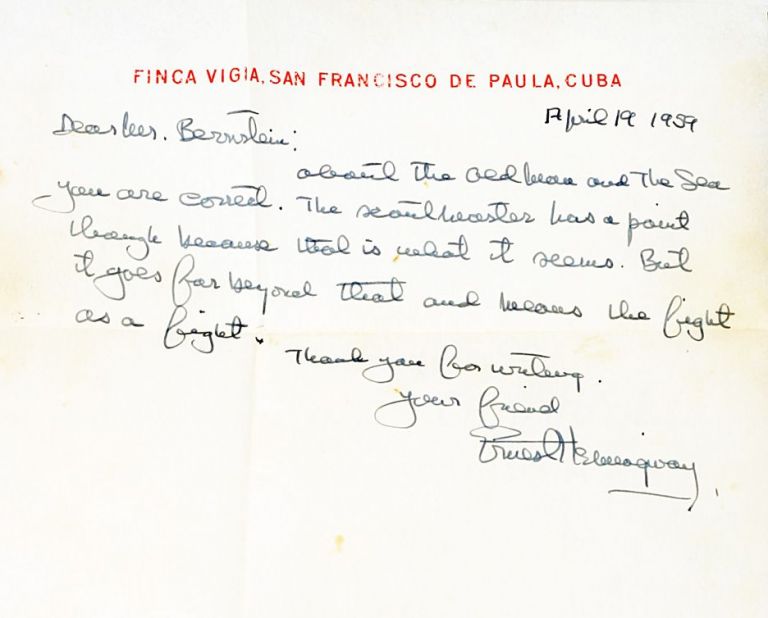 FINCA VIGIA, SAN FRANCISCO DE PAULA, CUBA
April 19 1959
Dear Mr. Bernstein:
about The Old Man and The Sea
you are correct. The scoutmaster has a point
though because that is what it seems. But
it goes far beyond that and means the fight
as a fight.
Thank you for writing.
Your friend
Ernest Hemingway